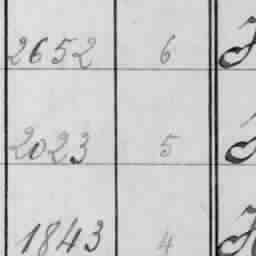 2652 6
2023 5
1843 4